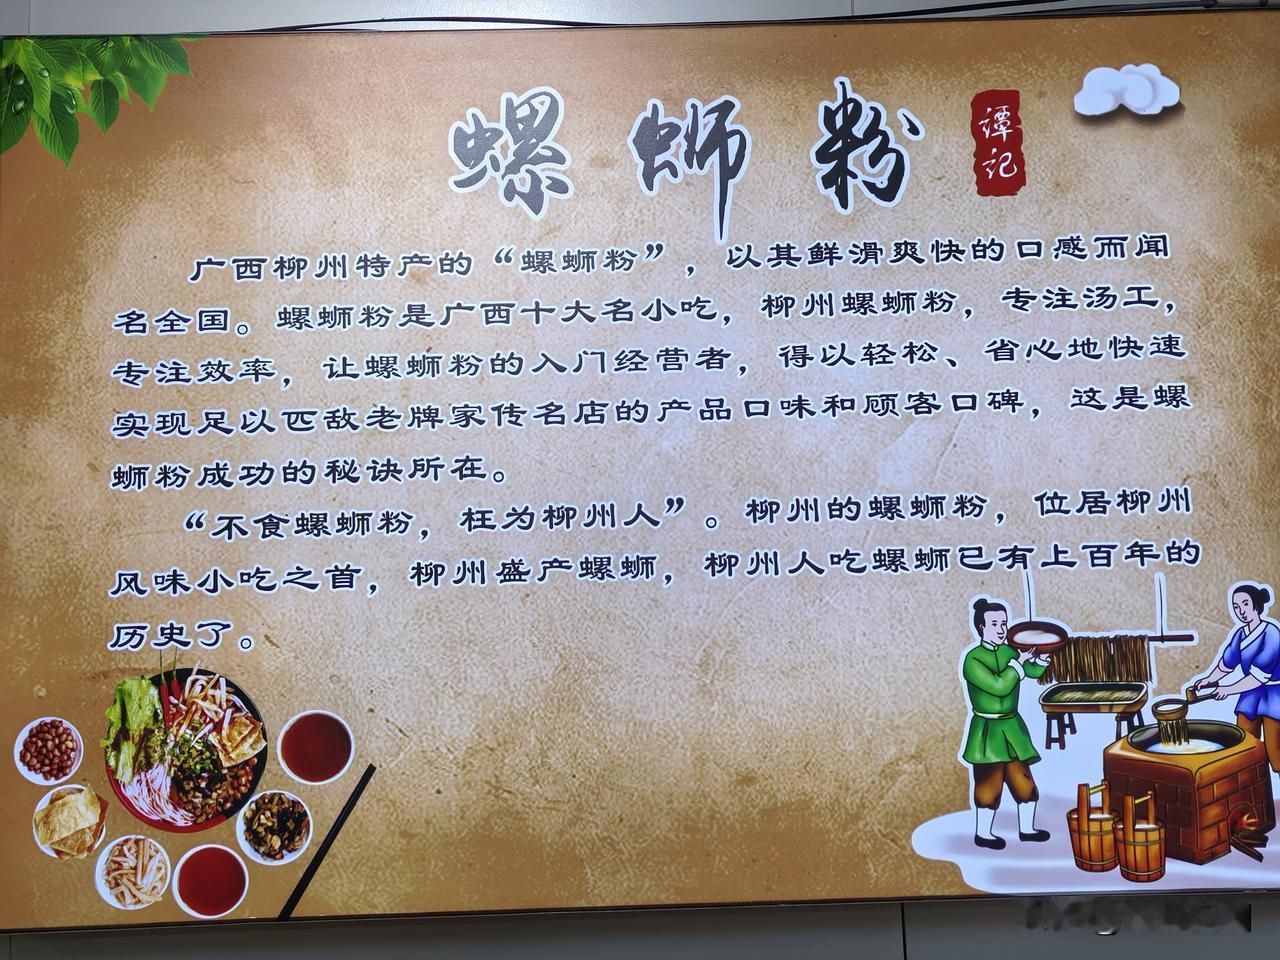 螺蛳粉
谭记
广西柳州特产的“螺蛳粉”，以其鲜滑爽快的口感而闻
名全国。螺蛳粉是广西十大名小吃，柳州螺蛳粉，专注汤工，
专注效率，让螺蛳粉的入门经营者，得以轻松、省心地快速
实现足以匹敌老牌家传名店的产品口味和顾客口碑，这是螺
蛳粉成功的秘诀所在。
“不食螺蛳粉，枉为柳州人”。柳州的螺蛳粉，位居柳州
风味小吃之首，柳州盛产螺蛳，柳州人吃螺蛳已有上百年的
历史了。